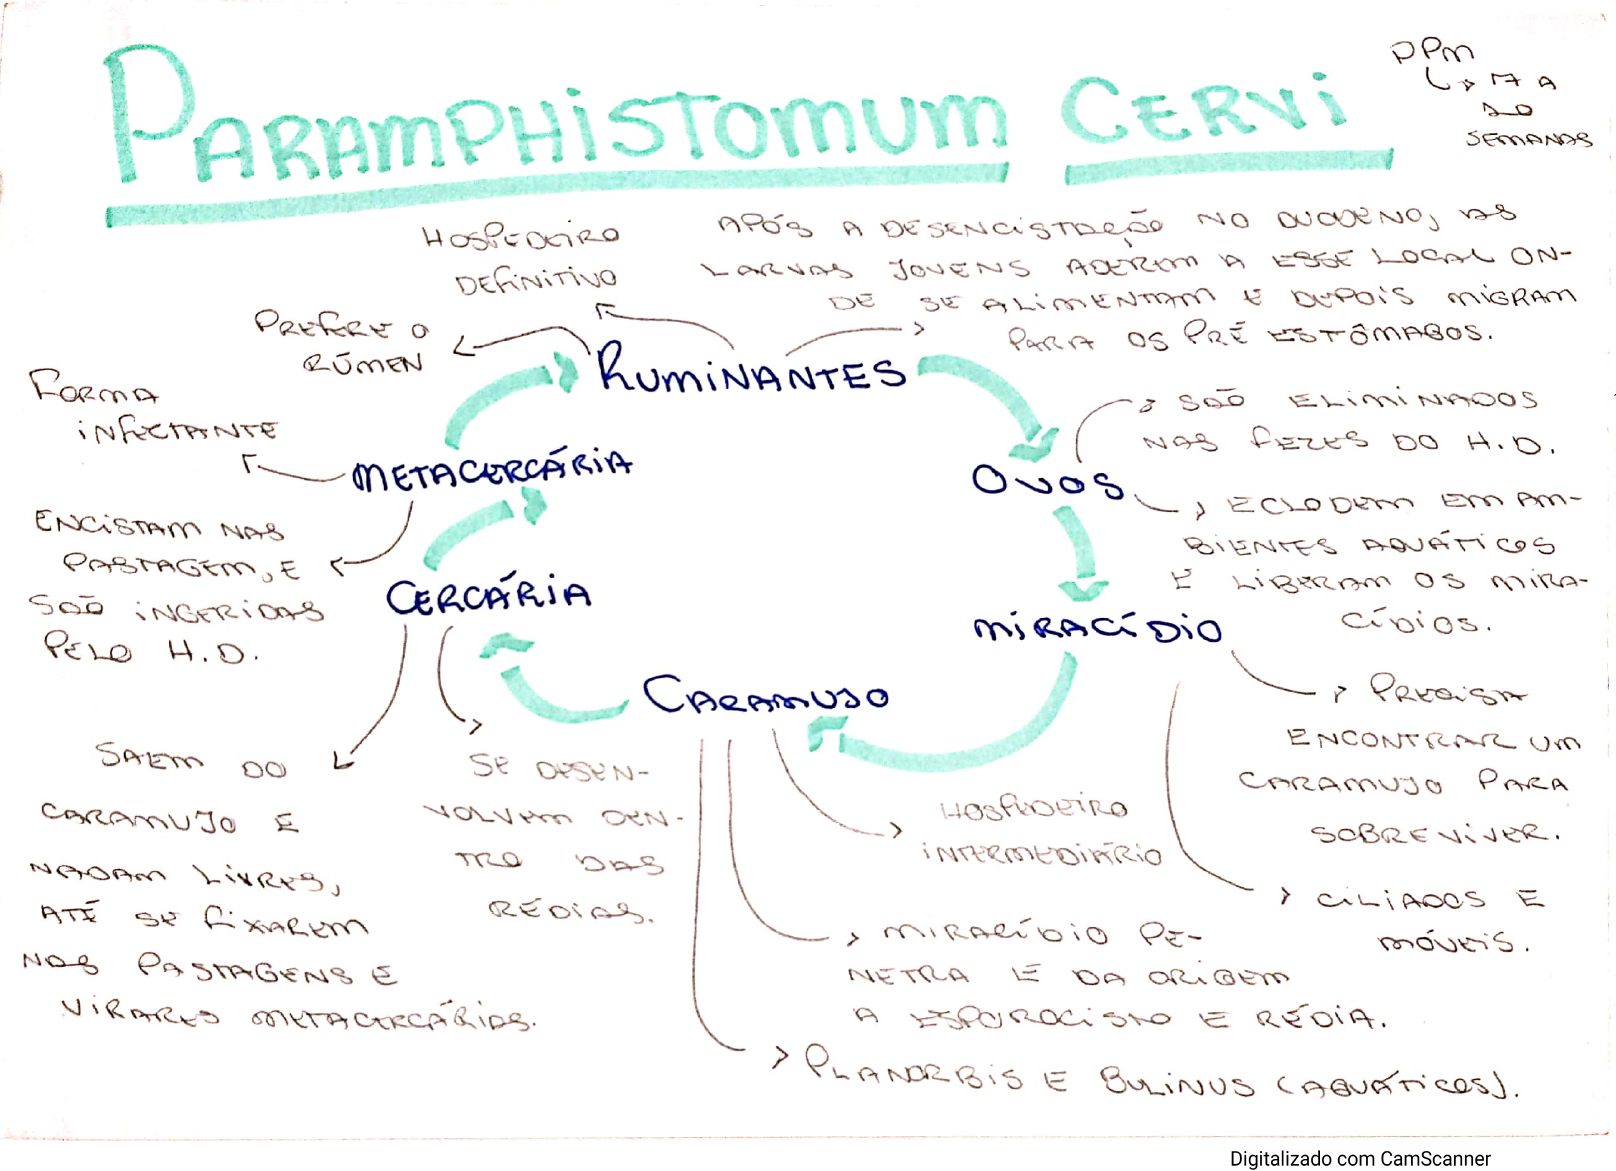 PARAMPHISTOMUM CERVI
PPM
↳ 17 A
20
SEMANAS
HOSPEDEIRO
DEFINITIVO
APÓS A DESENCISTAÇÃO NO DUODENO, AS
LARVAS JOVENS ADEREM A ESSE LOCAL ON-
DE SE ALIMENTAM E DEPOIS MIGRAM
PARA OS PRÉ ESTÔMAGOS.
PREFERE O
RÚMEN
RUMINANTES
FORMA
INFECTANTE
METACERCÁRIA
SÃO ELIMINADOS
NAS FEZES DO H.D.
OVOS
ECLODEM EM AM-
BIENTES AQUÁTICOS
E LIBERAM OS MIRA-
CÍDIOS.
ENCISTAM NAS
PASTAGEM, E
SÃO INGERIDAS
PELO H.D.
CERCÁRIA
MIRACÍDIO
CARAMUJO
PRECISA
ENCONTRAR UM
CARAMUJO PARA
SOBREVIVER.
CILIADOS E
MÓVEIS.
SAEM DO
CARAMUJO E
NADAM LIVRES,
ATÉ SE FIXAREM
NAS PASTAGENS E
VIRARES METACERCÁRIAS.
SE DESEN-
VOLVEM DEN-
TRO DAS
RÉDIAS.
HOSPEDEIRO
INTERMEDIÁRIO
MIRACÍDIO PE-
NETRA E DA ORIGEM
A ESPOROCISTO E RÉDIA.
PLANORBIS E BULINUS (AQUÁTICOS).
Digitalizado com CamScanner